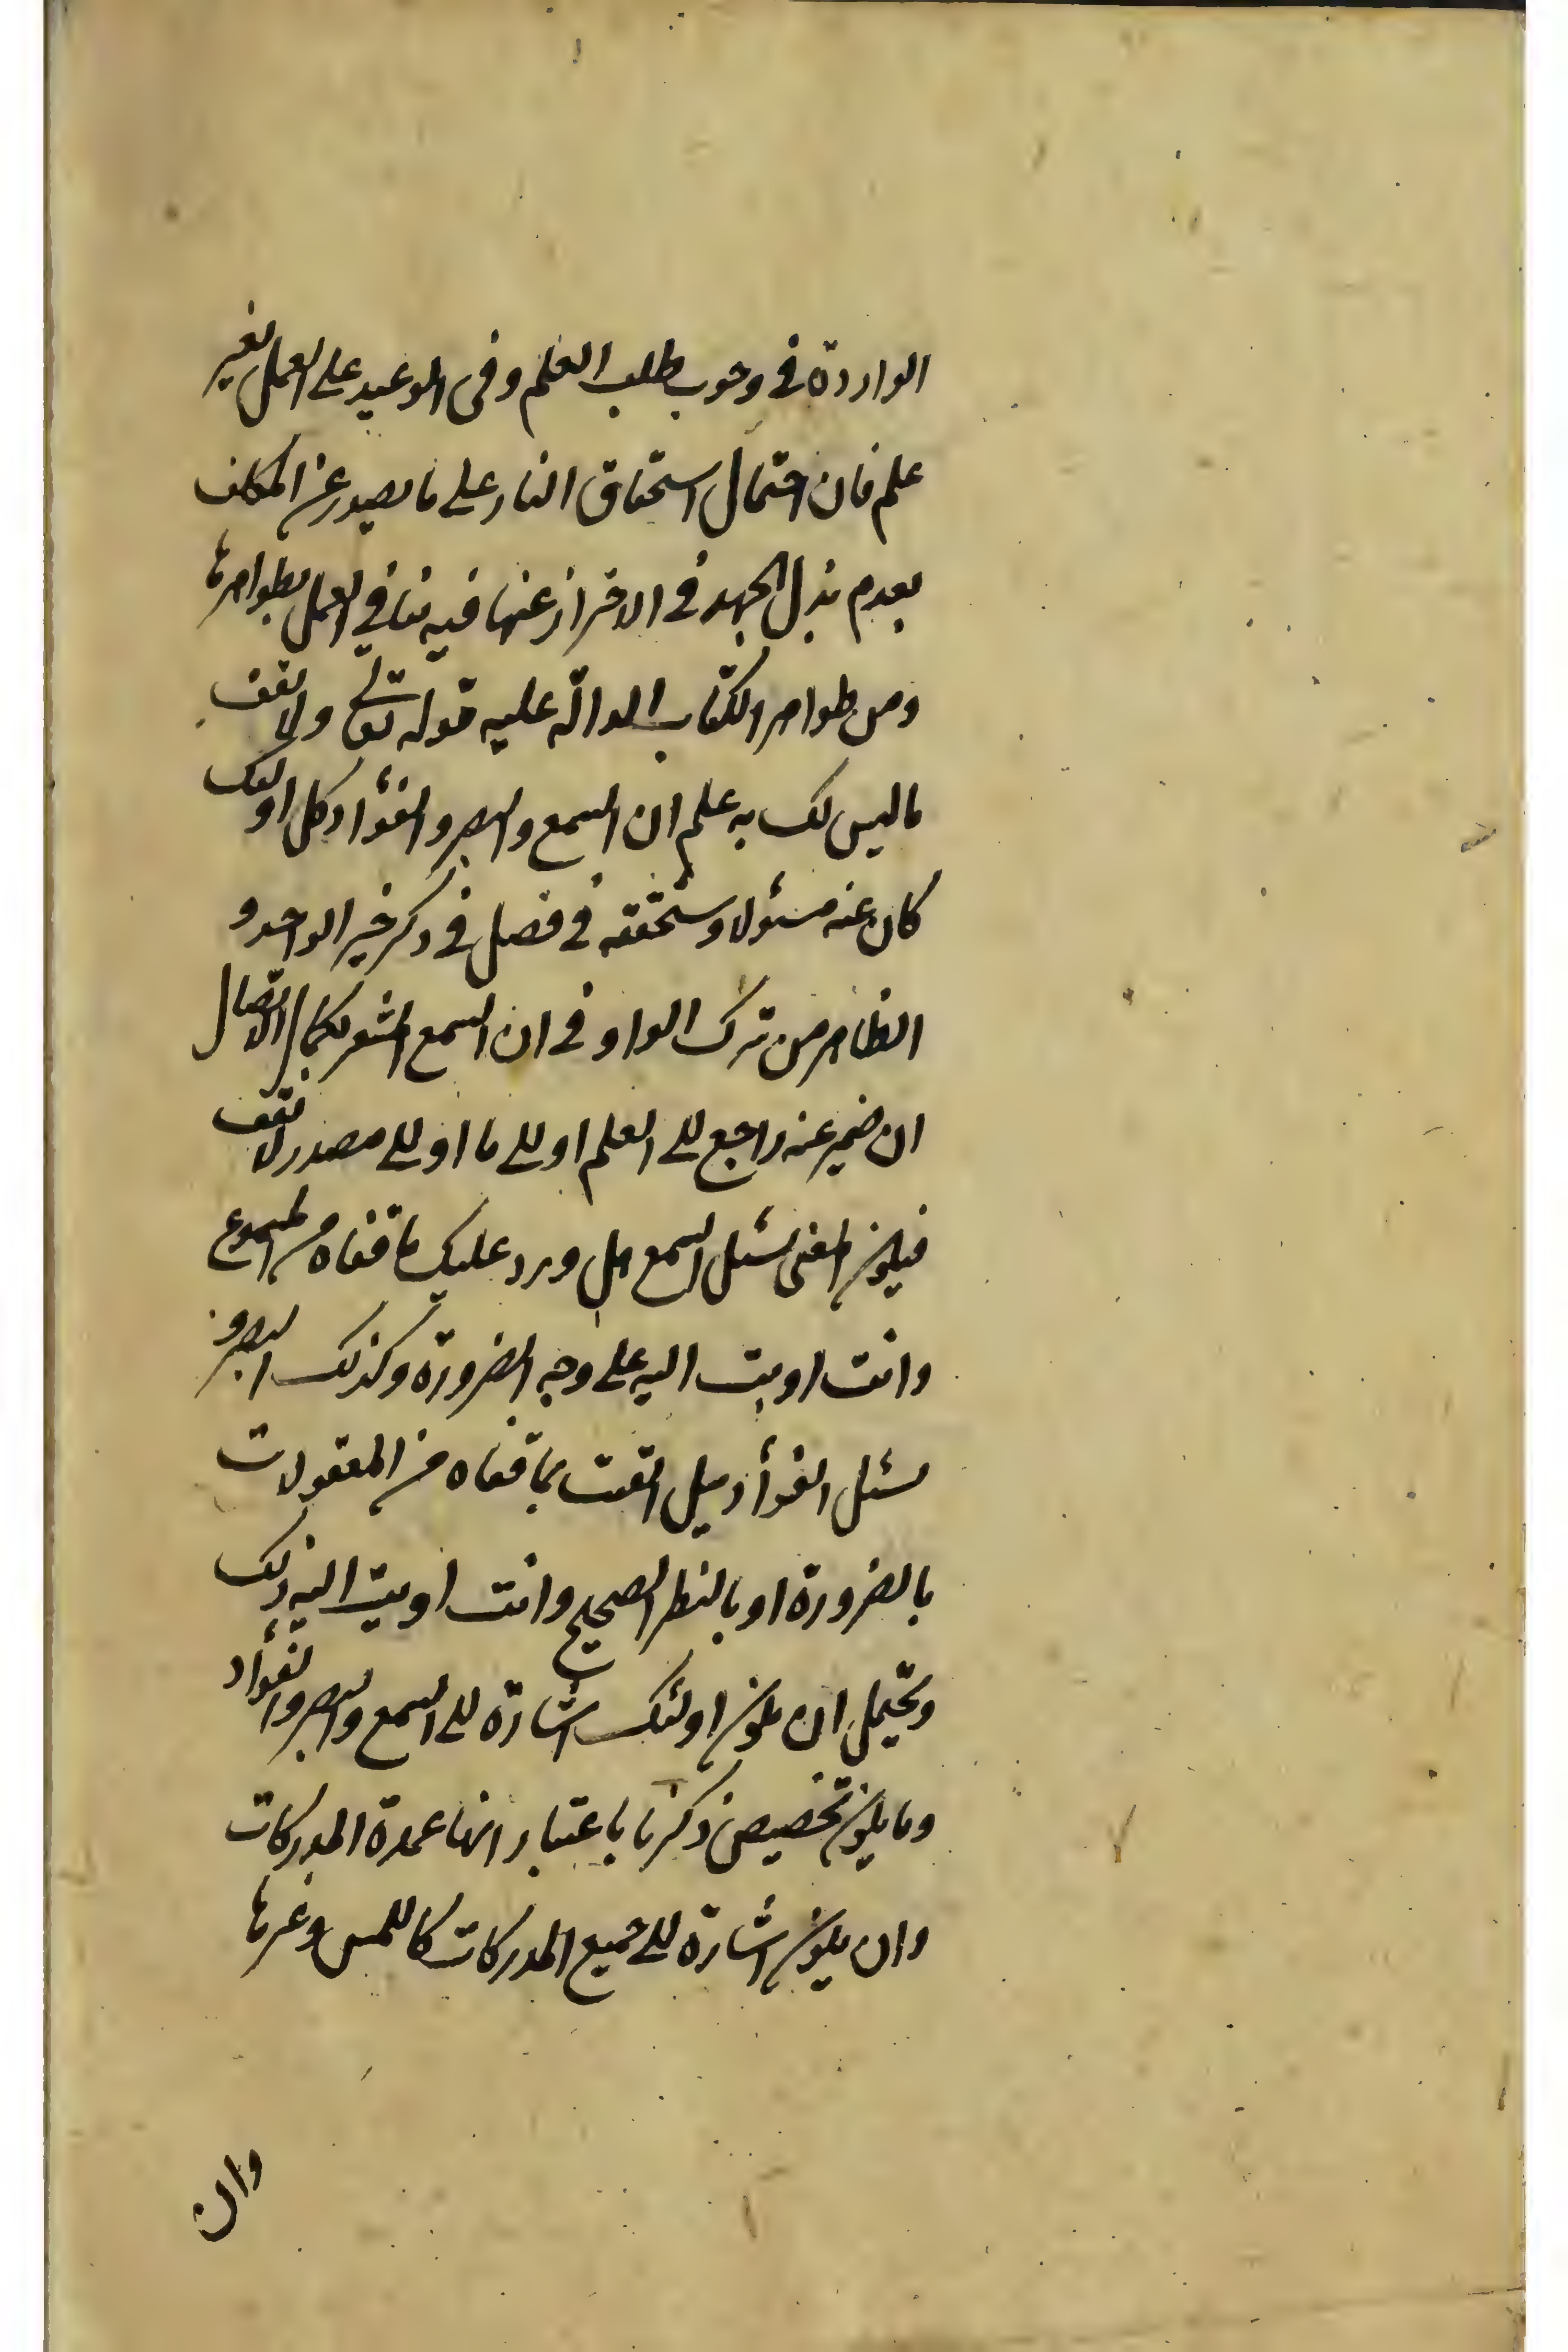 الواردة في وجوب طلب العلم وفى الوعيد على العمل بغير
علم فان احتمال استحقاق النار على ما يصدر عن المكلف
بعدم بذل الجهد في الاحتراز عنها فيه ينافي العمل بظواهرها
ومن ظواهر الكتاب الدالّة عليه قوله تعالى ولا تقف
ما ليس لك به علم ان السمع والبصر والفؤاد كل اولئك
كان عنه مسئولا وسنحققه في فصل في ذكر خبر الواحد و
الظاهر من ترك الواو في ان السمع المشعر بكمال الاتصال
ان ضمير عنه راجع الى العلم او الى ما او الى مصدر لا تقف
فيكون المعنى يسئل السمع هل ورد عليك ما قفاه من المسموع
وانت اديت اليه على وجه الضرورة وكذلك البصر و
يسئل الفؤاد هل ايقنت بما قفاه من المعقولات
بالضرورة او بالنظر الصحيح وانت اديت اليه ذلك
ويحتمل ان يكون اولئك اشارة الى السمع والبصر والفؤاد
وما يكون تخصيص ذكرها باعتبار انها عمدة المدركات
وان يكون اشارة الى جميع المدركات كاللمس وغيرها
وان